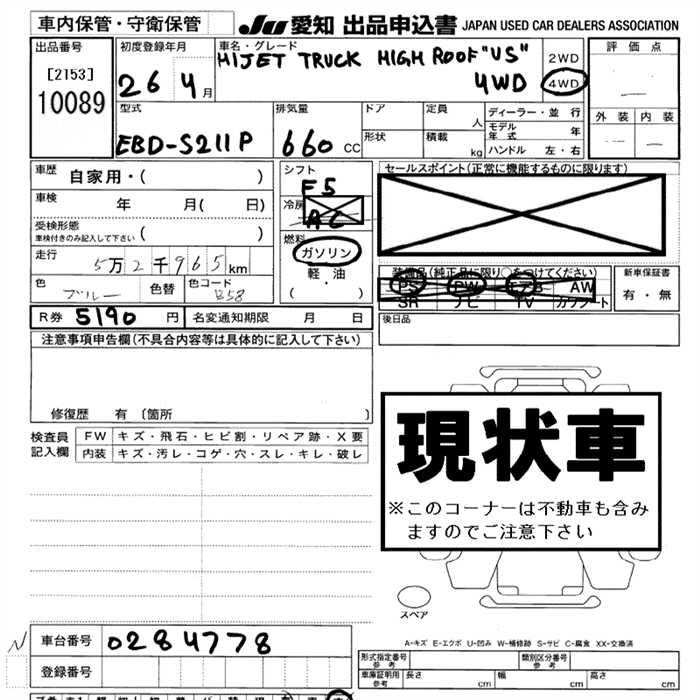 車内保管・守衛保管
JU 愛知 出品申込書 JAPAN USED CAR DEALERS ASSOCIATION
出品番号 初度登録年月 車名・グレード 評価点
[2153] HIJET TRUCK HIGH ROOF "VS" 2WD
10089 26 4月 4WD 4WD
外装 内装
型式 排気量 ドア 定員 人 ディーラー・並行
EBD-S211P 660 CC 形状 積載 kg モデル年式 年
ハンドル 左・右
車歴 自家用・( ) シフト F5 セールスポイント(正常に機能するものに限ります)
車検 年 月( 日) 冷房 AC
受検形態 車検付きのみ記入して下さい ( ) 燃料 ガソリン
走行 5万2千965km 軽・油
( ・ )
色 ブルー 色替 色コード B58
装備品(純正品に限り○をつけてください) 新車保証書
PS PW エアB AW 有・無
SR ナビ TV カワシート
R券 5190 円 名変通知期限 月 日 後日品
注意事項申告欄(不具合内容等は具体的に記入して下さい)
修復歴 有 〔箇所 〕
検査員記入欄 FW キズ・飛石・ヒビ割・リペア跡・X要
内装 キズ・汚レ・コゲ・穴・スレ・キレ・破レ
現状車
※このコーナーは不動車も含み
ますのでご注意下さい
スペア
A-キズ E-エクボ U-凹み W-補修跡 S-サビ C-腐食 XX-交換済
N 車台番号 0284778
登録番号
形式指定番号 参考 類別区分番号 参考
車庫証明用 参考 長さ cm 幅 cm 高さ cm